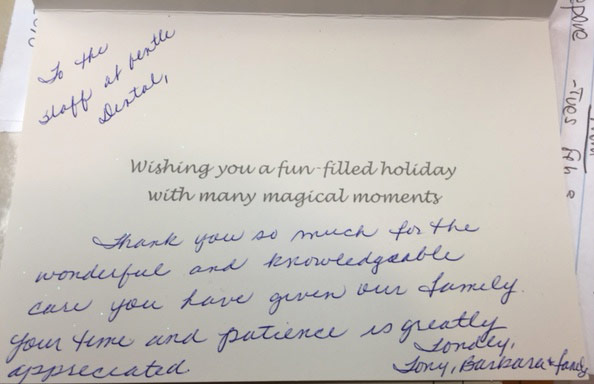 To the
staff at Gentle
Dental,
Wishing you a fun-filled holiday
with many magical moments
Thank you so much for the
wonderful and knowledgeable
care you have given our family.
Your time and patience is greatly
appreciated
Fondly,
Tony, Barbara & family
Tues